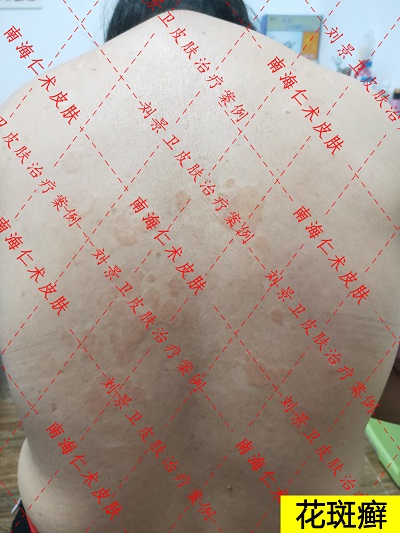 刘景卫皮肤治疗案例
南海仁术皮肤
刘景卫皮肤
南海仁术皮肤
刘景卫皮肤治疗案例
卫皮肤治疗案例
南海仁术皮肤
南海仁术皮肤
南海仁术皮肤
刘景卫皮肤治疗案例
刘景卫皮肤治疗案例
刘景卫皮肤治疗案例
刘景卫皮肤治疗案例
南海仁术皮肤
南海仁术皮肤
花斑癣